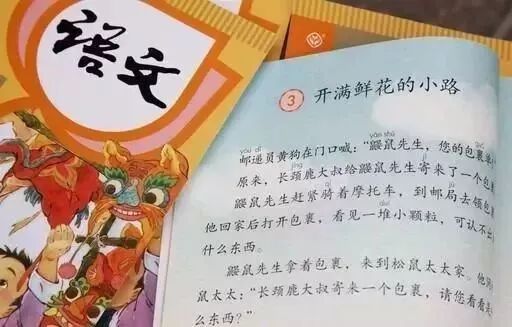 语文
3 开满鲜花的小路
yóu dì
yǎn shǔ
邮递员黄狗在门口喊:“鼹鼠先生,您的包裹单
原来,长颈鹿大叔给鼹鼠先生寄来了一个包裹
鼹鼠先生赶紧骑着摩托车,到邮局去领包裹
他回家后打开包裹,看见一堆小颗粒,可认不出
什么东西。
鼹鼠先生拿着包裹,来到松鼠太太家。他
鼠太太:“长颈鹿大叔寄来一个包裹,请您看看是
么东西?”